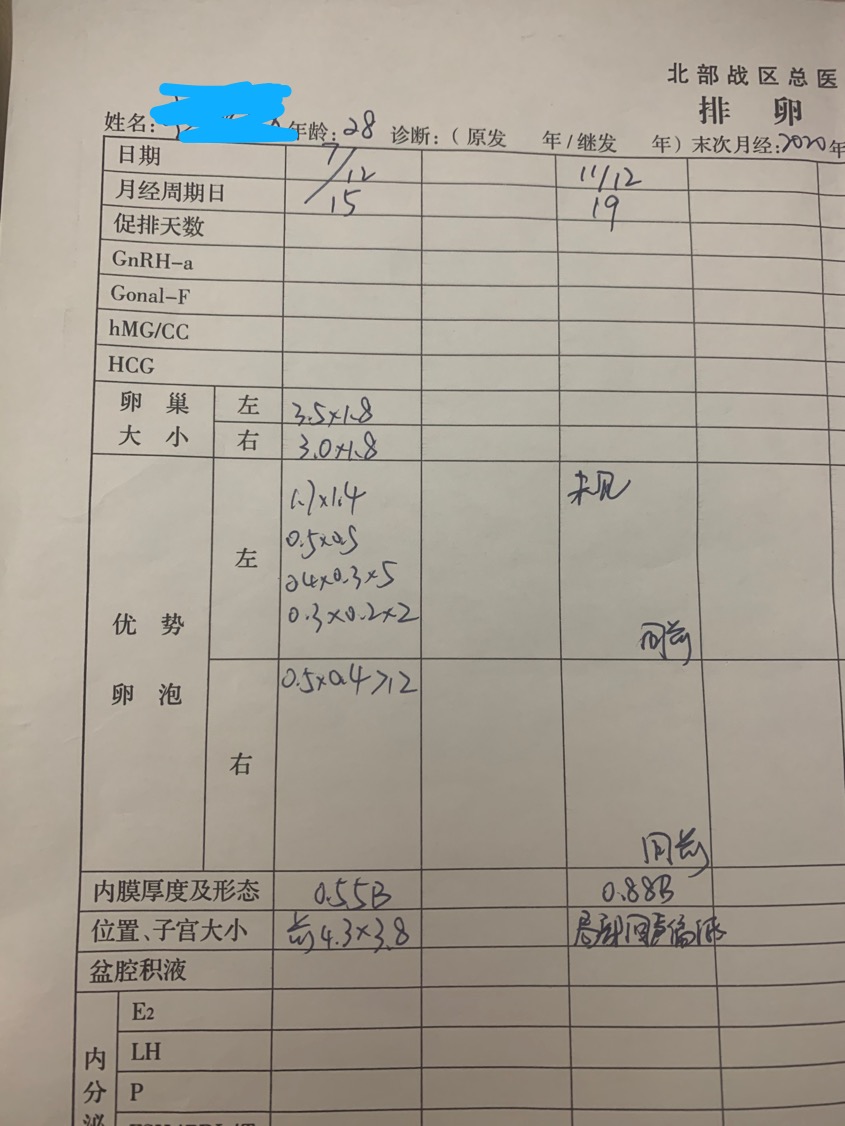 北部战区总医
排 卵
姓名: 年龄: 28 诊断:( 原发 年/继发 年) 末次月经: 2020年
日期 7/12 11/12
月经周期日 15 19
促排天数
GnRH-a
Gonal-F
hMG/CC
HCG
卵巢大小 左 3.5×1.8
右 3.0×1.8
优势卵泡 左 1.7×1.4 未见
0.5×0.5
0.4×0.3×5
0.3×0.2×2 同前
右 0.5×0.4>12
同前
内膜厚度及形态 0.55B 0.88B
位置、子宫大小 前4.3×3.8 局部回声偏低
盆腔积液
内分泌 E2
LH
P